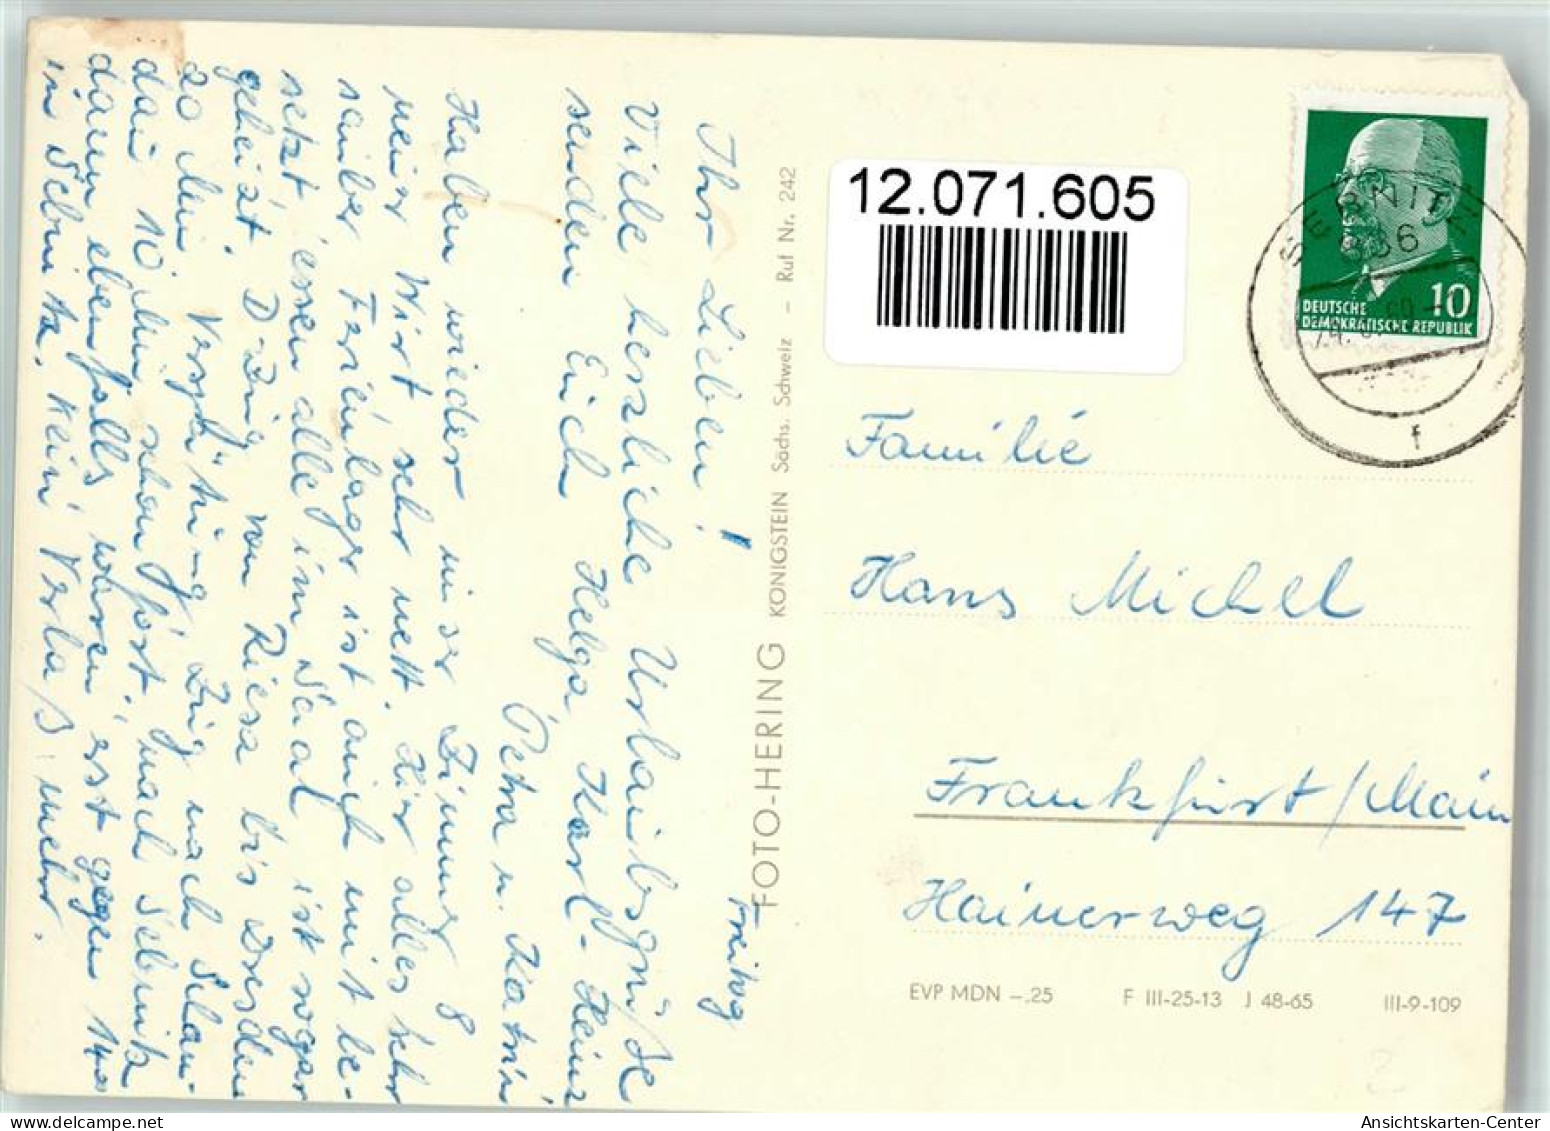 Freitag
Ihr Lieben!
Viele herzliche Urlaubsgrüße
senden Euch Helga Karl-Heinz
Petra u. Katrin
Haben wieder unser Zimmer 8
Wirt sehr nett. Hier alles sehr
sauber Ferienlager ist auch mit be-
setzt, essen alle im Saal ist sogar
geheizt. D-Zug von Riesa bis Dresden
20 Min Verspätung Zug nach
dann 10 Min schon fort, nach Sebnitz
dann ebenfalls, waren erst gegen 14⁰⁰
in Sebnitz. Kein Verlaß mehr.
FOTO-HERING KÖNIGSTEIN Sächs. Schweiz – Ruf Nr. 242
12.071.605
DEUTSCHE 10
DEMOKRATISCHE REPUBLIK
SEBNITZ
836
f
Familie
Hans Michel
Frankfurt/Main
Hainerweg 147
EVP MDN –.25 F III-25-13 J 48-65 III-9-109
Ansichtskarten-Center